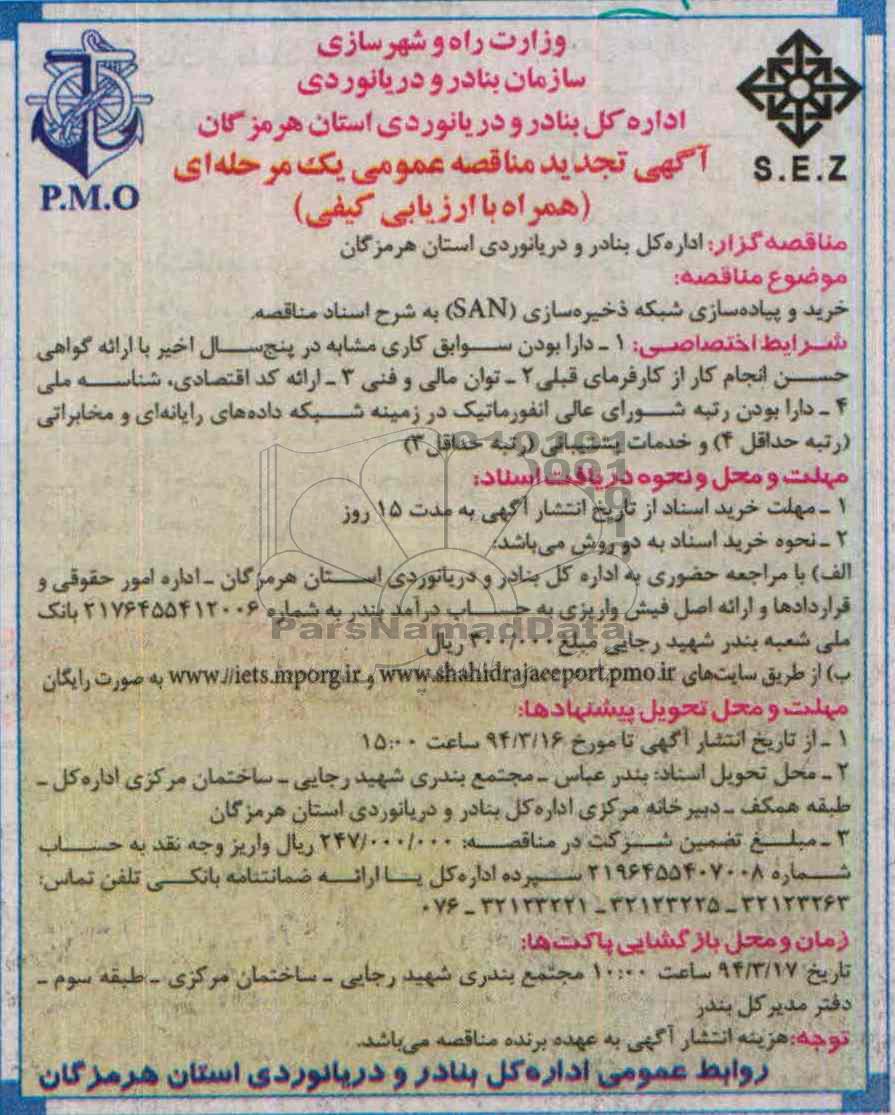 وزارت راه و شهرسازی
سازمان بنادر و دریانوردی
اداره کل بنادر و دریانوردی استان هرمزگان
آگهی تجدید مناقصه عمومی یک مرحله‌ای
(همراه با ارزیابی کیفی)
P.M.O
S.E.Z
مناقصه‌گزار: اداره‌کل بنادر و دریانوردی استان هرمزگان
موضوع مناقصه:
خرید و پیاده‌سازی شبکه ذخیره‌سازی (SAN) به شرح اسناد مناقصه.
شرایط اختصاصی: ۱ ـ دارا بودن سوابق کاری مشابه در پنج‌سال اخیر با ارائه گواهی
حسن انجام کار از کارفرمای قبلی ۲ ـ توان مالی و فنی ۳ ـ ارائه کد اقتصادی، شناسه ملی
۴ ـ دارا بودن رتبه شورای عالی انفورماتیک در زمینه شبکه داده‌های رایانه‌ای و مخابراتی
(رتبه حداقل ۴) و خدمات پشتیبانی (رتبه حداقل ۳)
مهلت و محل و نحوه دریافت اسناد:
۱ ـ مهلت خرید اسناد از تاریخ انتشار آگهی به مدت ۱۵ روز
۲ ـ نحوه خرید اسناد به دو روش می‌باشد:
الف) با مراجعه حضوری به اداره کل بنادر و دریانوردی استان هرمزگان ـ اداره امور حقوقی و
قراردادها و ارائه اصل فیش واریزی به حساب درآمد بندر به شماره ۲۱۷۶۴۵۵۴۱۲۰۰۶ بانک
ParsNamadData
ملی شعبه بندر شهید رجایی مبلغ ۳۰۰/۰۰۰ ریال
ب) از طریق سایت‌های www.shahidrajaeeport.pmo.ir و www.//iets.mporg.ir به صورت رایگان
مهلت و محل تحویل پیشنهادها:
۱ ـ از تاریخ انتشار آگهی تا مورخ ۹۴/۳/۱۶ ساعت ۱۵:۰۰
۲ ـ محل تحویل اسناد: بندر عباس ـ مجتمع بندری شهید رجایی ـ ساختمان مرکزی اداره‌کل ـ
طبقه همکف ـ دبیرخانه مرکزی اداره‌کل بنادر و دریانوردی استان هرمزگان
۳ ـ مبلغ تضمین شرکت در مناقصه: ۲۴۷/۰۰۰/۰۰۰ ریال واریز وجه نقد به حساب
شماره ۲۱۹۶۴۵۵۴۰۷۰۰۸ سپرده اداره‌کل یا ارائه ضمانتنامه بانکی تلفن تماس:
۳۲۱۲۳۲۶۳ ـ ۳۲۱۲۳۲۲۵ ـ ۳۲۱۲۳۲۲۱ ـ ۰۷۶
زمان و محل بازگشایی پاکت‌ها:
تاریخ ۹۴/۳/۱۷ ساعت ۱۰:۰۰ مجتمع بندری شهید رجایی ـ ساختمان مرکزی ـ طبقه سوم ـ
دفتر مدیرکل بندر
توجه: هزینه انتشار آگهی به عهده برنده مناقصه می‌باشد.
روابط عمومی اداره‌کل بنادر و دریانوردی استان هرمزگان